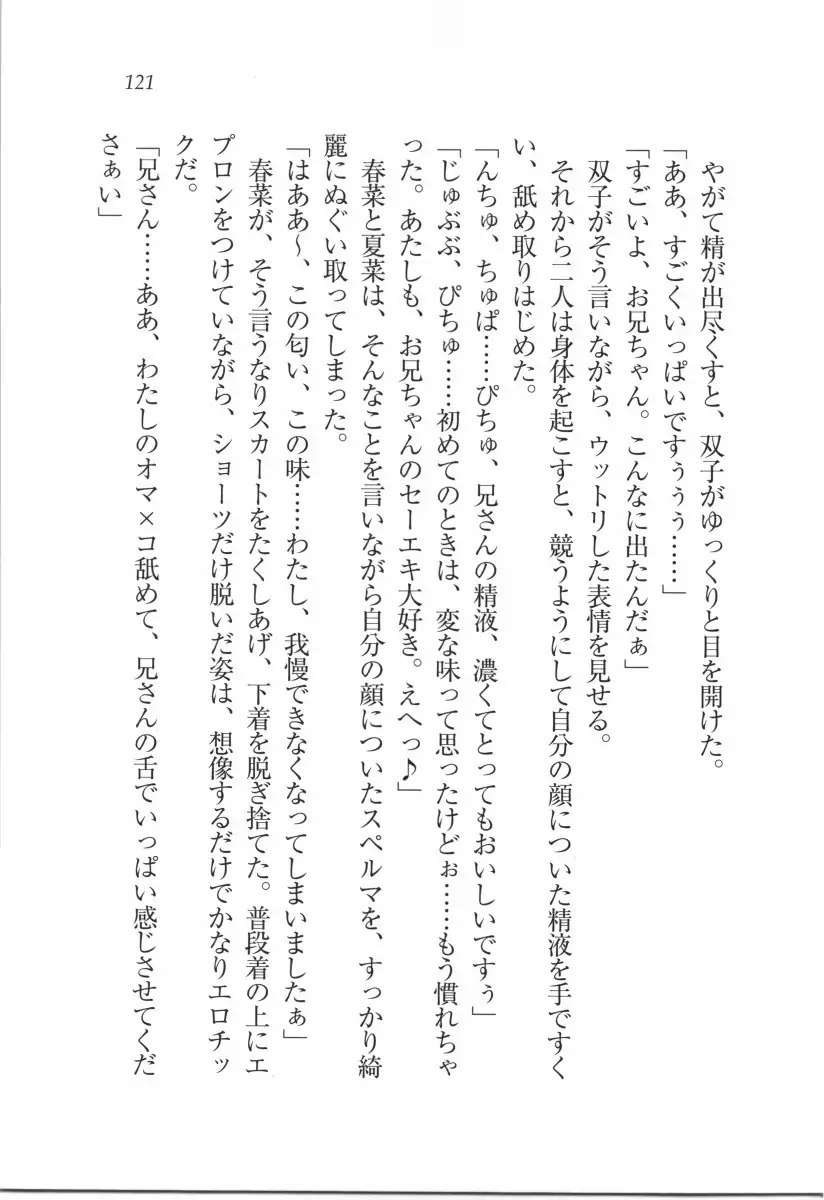 121
やがて精が出尽くすと、双子がゆっくりと目を開けた。
「ああ、すごくいっぱいですぅぅぅ……」
「すごいよ、お兄ちゃん。こんなに出たんだぁ」
双子がそう言いながら、ウットリした表情を見せる。
それから二人は身体を起こすと、競うようにして自分の顔についた精液を手ですく
い、舐め取りはじめた。
「んちゅ、ちゅぱ……ぴちゅ、兄さんの精液、濃くてとってもおいしいですぅ」
「じゅぶぶ、ぴちゅ……初めてのときは、変な味って思ったけどぉ……もう慣れちゃ
った。あたしも、お兄ちゃんのセーエキ大好き。えへっ♪」
春菜と夏菜は、そんなことを言いながら自分の顔についたスペルマを、すっかり綺
麗にぬぐい取ってしまった。
「はああ～、この匂い、この味……わたし、我慢できなくなってしまいましたぁ」
春菜が、そう言うなりスカートをたくしあげ、下着を脱ぎ捨てた。普段着の上にエ
プロンをつけていながら、ショーツだけ脱いだ姿は、想像するだけでかなりエロチッ
クだ。
「兄さん……ああ、わたしのオマ×コ舐めて、兄さんの舌でいっぱい感じさせてくだ
さぁい」